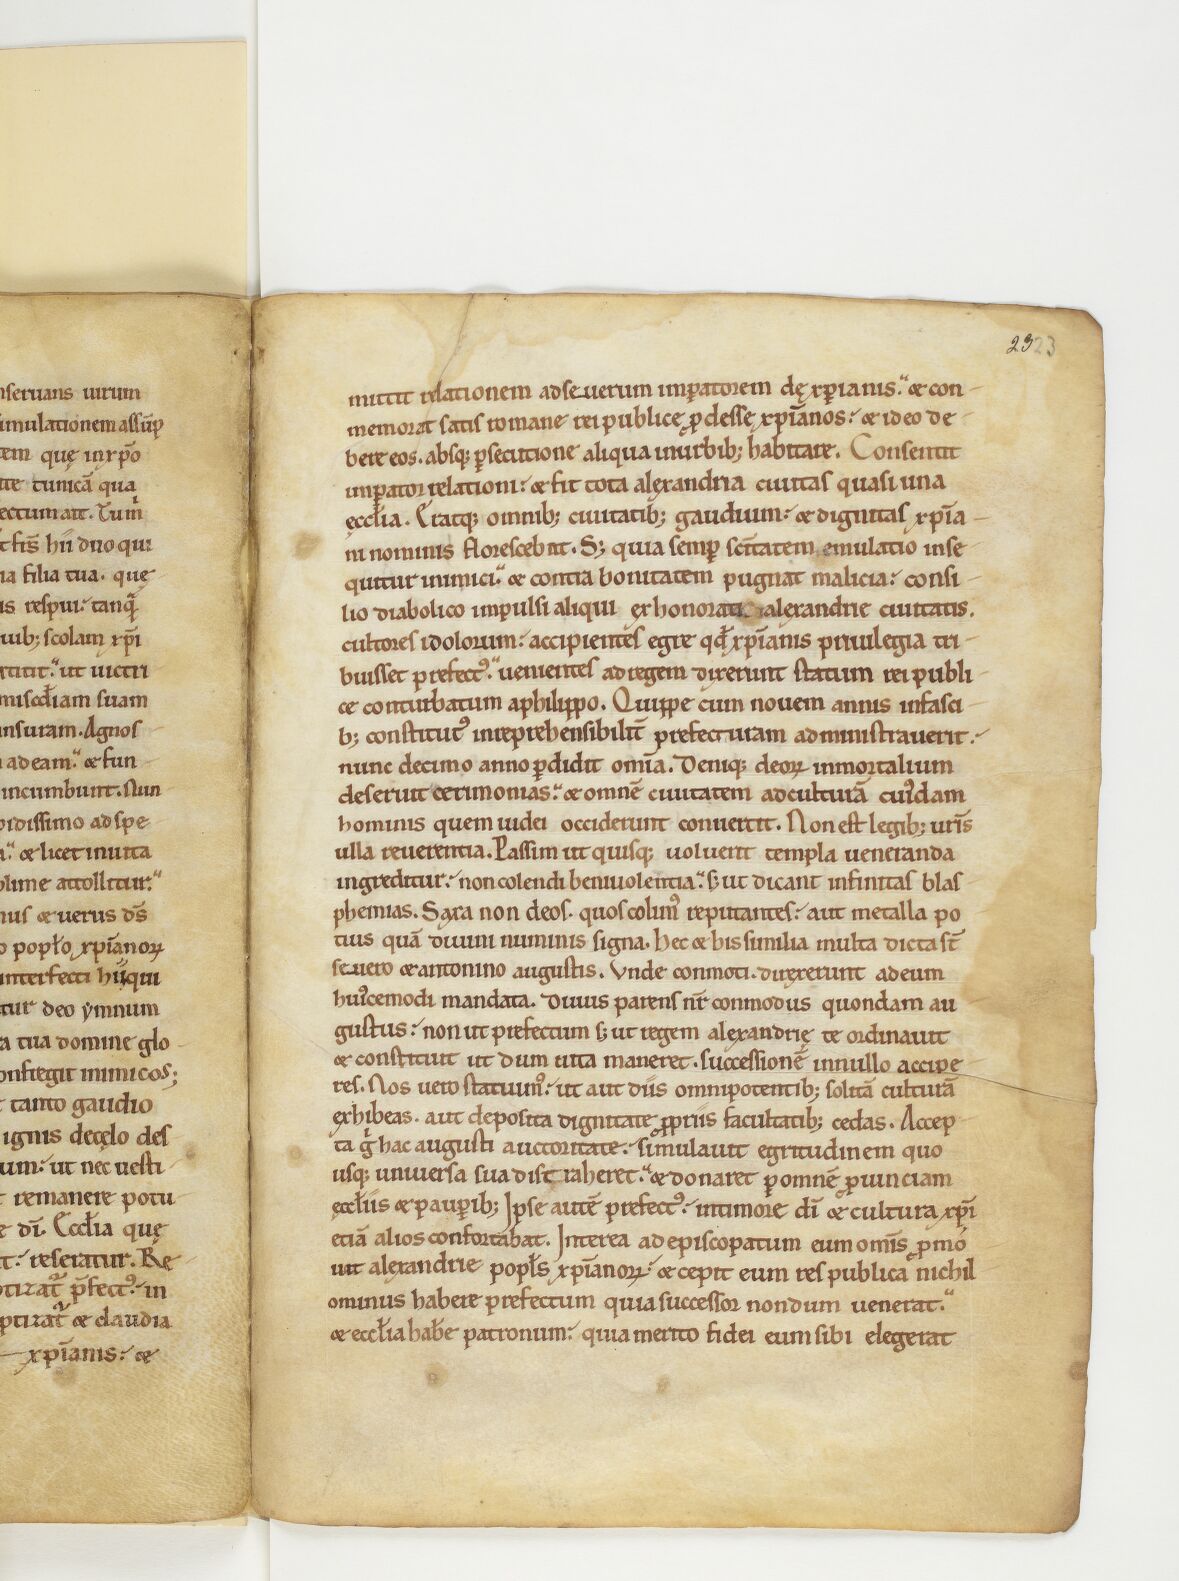 nseruans uirum
imulationem assūp
tem quę in xp̄o
ite tunicā qua
ectum ait. Tum
t fr̄s hii duo qui
ia filia tua. quę
is respui: tanq̄
uib; scolam xp̄i
rtitit. ut uictri
misc̄diam suam
nsuram. Agnos
adeam. & fun
incumbunt. Nun
pidissimo ad spe
a. & licet inuita
blime attollitur.
nus & uerus d̄s
o popl̄o xp̄ianoꝝ
interfecti hii qui
tur deo ẏmnum
a tua domine glo
onfregit inimicos;
t tanto gaudio
ignis decęlo des
um: ut nec uesti
t remanere potu
e dī. Eccl̄ia quę
t: reseratur. Re
ptizat̄ p̄fect᾽: in
ptizat̄ & claudia
xp̄ianis: &
23 23
mittit relationem ad seuerum imperatorem dę xp̄ianis. & con-
memorat satis romane rei publicę ꝓdesse xp̄ianos: & ideo de-
bere eos. absq; ꝑsecutione aliqua in urbib; habitare. Consentit
imperator relationi: & fit tota alexandria ciuitas quasi una
eccl̄ia. Eratq; omnib; ciuitatib; gaudium: & dignitas xp̄ia-
ni nominis florescebat. S; quia semꝑ sc̄itatem emulatio inse-
quitur inimici. & contra bonitatem pugnat malicia: consi-
lio diabolico impulsi aliqui ex honorati alexandrie ciuitatis.
cultores idolorum: accipientes egre qd̄ xp̄ianis priuilegia tri-
buisset prefect᾽. uenientes ad regem dixerunt statum rei publi-
ce conturbatum a philippo. Quippe cum nouem annis in fasci-
b; constitut᾽ inreprehensibilit̄ prefecturam administrauerit:
nunc decimo anno ꝑdidit om̄ia. Denique deoꝝ inmortalium
deseruit cerimonias. & omnē ciuitatem ad culturā cui᾽dam
hominis quem iudei occiderunt conuertit. Non est legib; ur̄is
ulla reuerentia. Passim ut quisq; uoluerit templa ueneranda
ingreditur: non colendi beniuolentia. s; ut dicant infinitas blas-
phemias. Saxa non deos. quos colim᾽ reputantes: aut metalla po
tius quā diuini numinis signa. hec & his similia multa dicta st̄
seuero & antonino augustis. Vnde conmoti. direxerunt ad eum
hui᾽cemodi mandata. Diuus parens nr̄ conmodus quondam au-
gustus: non ut prefectum s; ut regem alexandrię te ordinauit
& constituit ut dum uita maneret. successionē in nullo accipe-
res. Nos uero statuim᾽: ut aut diis omnipotentib; solitā culturā
exhibeas. aut deposita dignitate ꝓpriis facultatib; cedas. Accep-
ta g̊ hac augusti auctoritate: simulauit egritudinem quo
usq; uniuersa sua distraheret. & donaret ꝑ omnē ꝓuinciam
eccl̄iis & pauꝑib; Ipse autē prefect᾽: in timore dī & cultura xp̄i
etiā alios confortabat. Interea ad episcopatum eum om̄is ꝓmo
uit alexandrie popl̄s xp̄ianoꝝ: & cepit eum res publica nichil
ominus habere prefectum quia successor nondum uenerat.
& eccl̄ia hab̄e patronum: quia merito fidei eum sibi elegerat